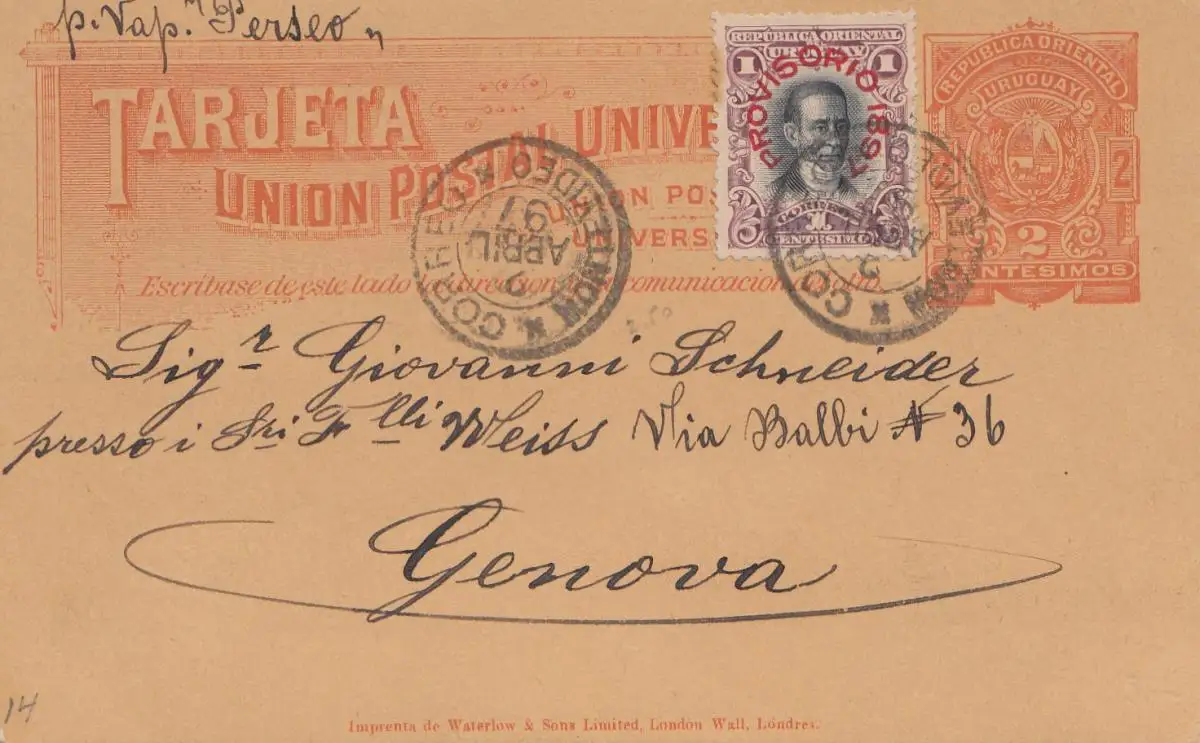 p. Vap.r "Perseo"
TARJETA
UNION POSTAL UNIVE
UNION POS
UNIVERS
Escríbase de este lado la direccion comunicacion
REPUBLICA ORIENTAL
URUGUAY
1 1
PROVISORIO 1897
CORREOS
1
CENTESIMO
REPUBLICA ORIENTAL
URUGUAY
2
2
CENTESIMOS
CORREOS MONTEVIDEO
9
ABRIL
97
2.50
Sigr Giovanni Schneider
presso i Sri Flli Weiss Via Balbi N 36
Genova
14
Imprenta de Waterlow & Sons Limited, London Wall, Lóndres.